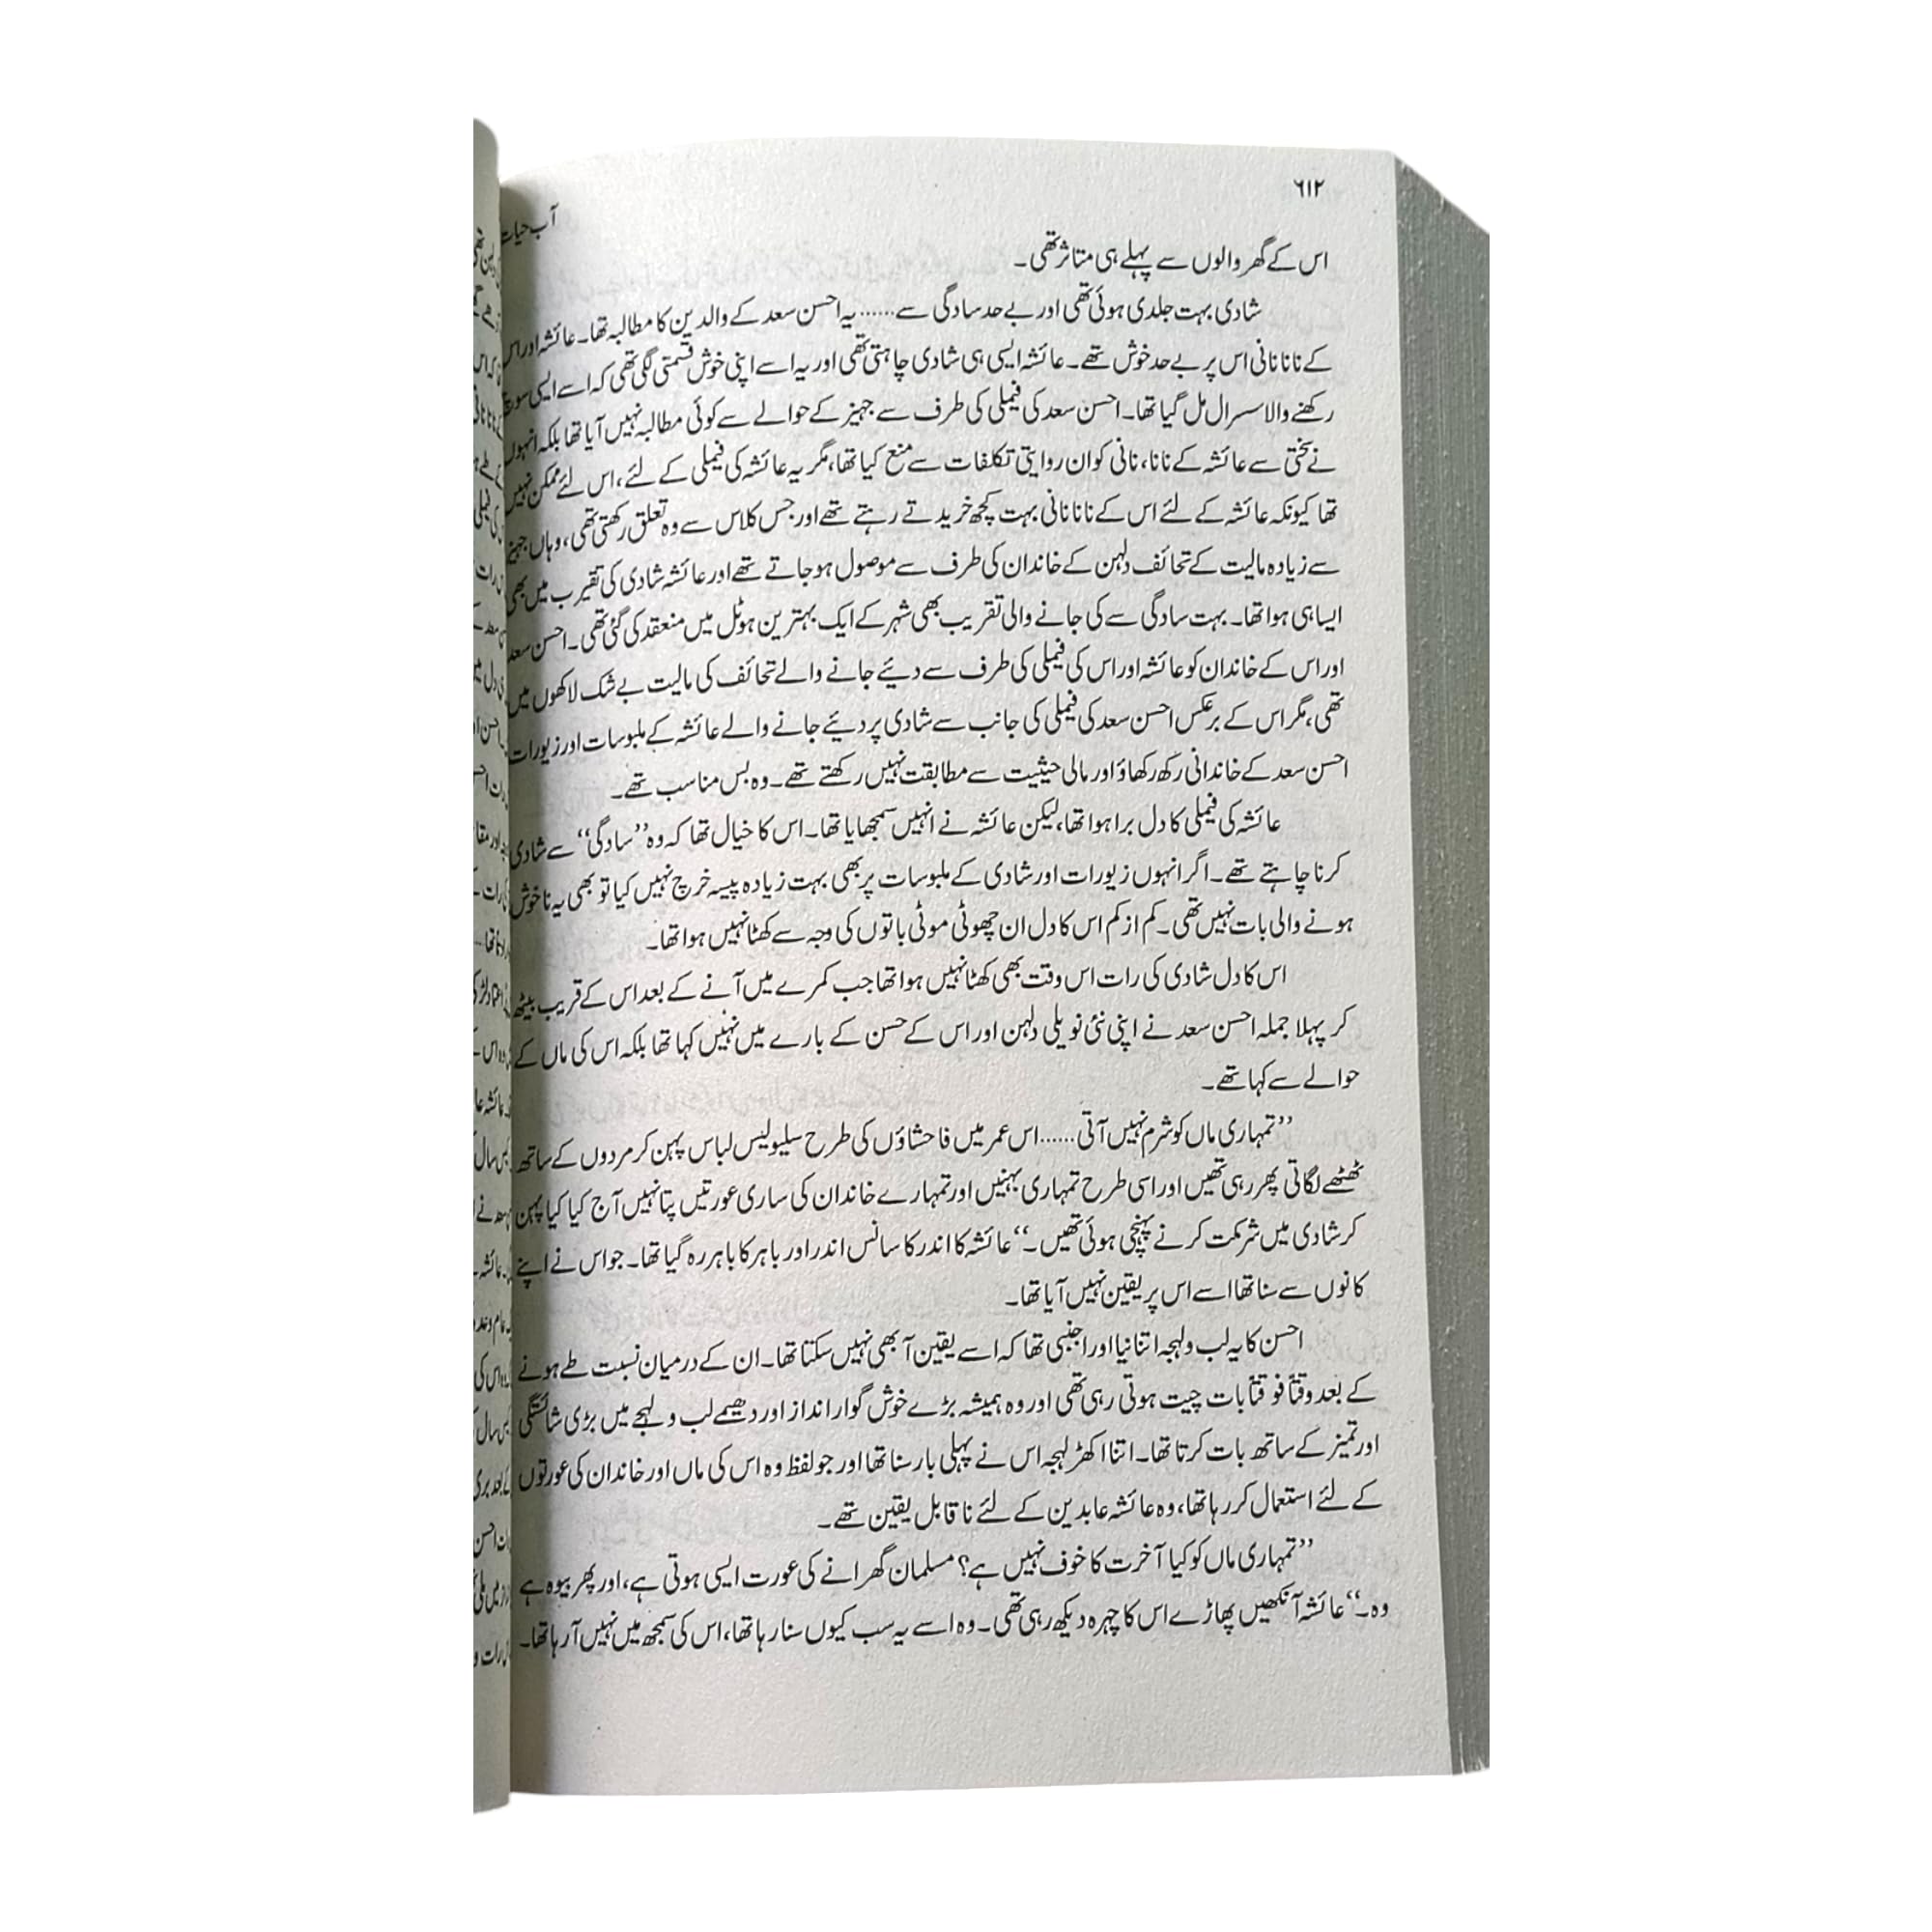 ۶۱۲
آب حیات
اس کے گھر والوں سے پہلے ہی متاثر تھی۔
شادی بہت جلدی ہوئی تھی اور بے حد سادگی سے...... یہ احسن سعد کے والدین کا مطالبہ تھا۔ عائشہ اور اس
کے نانا نانی اس پر بے حد خوش تھے۔ عائشہ ایسی ہی شادی چاہتی تھی اور یہ اسے اپنی خوش قسمتی لگی تھی کہ اسے ایسی سوچ
رکھنے والا سسرال مل گیا تھا۔ احسن سعد کی فیملی کی طرف سے جہیز کے حوالے سے کوئی مطالبہ نہیں آیا تھا بلکہ انہوں
نے سختی سے عائشہ کے نانا، نانی کو ان روایتی تکلفات سے منع کیا تھا، مگر یہ عائشہ کی فیملی کے لئے، اس لئے ممکن نہیں
تھا کیونکہ عائشہ کے لئے اس کے نانا نانی بہت کچھ خریدتے رہتے تھے اور جس کلاس سے وہ تعلق رکھتی تھی، وہاں جہیز
سے زیادہ مالیت کے تحائف دلہن کے خاندان کی طرف سے موصول ہو جاتے تھے اور عائشہ شادی کی تقریب میں بھی
ایسا ہی ہوا تھا۔ بہت سادگی سے کی جانے والی تقریب بھی شہر کے ایک بہترین ہوٹل میں منعقد کی گئی تھی۔ احسن سعد
اور اس کے خاندان کو عائشہ اور اس کی فیملی کی طرف سے دیئے جانے والے تحائف کی مالیت بے شک لاکھوں میں
تھی، مگر اس کے برعکس احسن سعد کی فیملی کی جانب سے شادی پر دیئے جانے والے عائشہ کے ملبوسات اور زیورات
احسن سعد کے خاندانی رکھ رکھاؤ اور مالی حیثیت سے مطابقت نہیں رکھتے تھے۔ وہ بس مناسب تھے۔
عائشہ کی فیملی کا دل برا ہوا تھا، لیکن عائشہ نے انہیں سمجھایا تھا۔ اس کا خیال تھا کہ وہ ’’سادگی‘‘ سے شادی
کرنا چاہتے تھے۔ اگر انہوں زیورات اور شادی کے ملبوسات پر بھی بہت زیادہ پیسہ خرچ نہیں کیا تو بھی یہ ناخوش
ہونے والی بات نہیں تھی۔ کم از کم اس کا دل ان چھوٹی موٹی باتوں کی وجہ سے کھٹا نہیں ہوا تھا۔
اس کا دل شادی کی رات اس وقت بھی کھٹا نہیں ہوا تھا جب کمرے میں آنے کے بعد اس کے قریب بیٹھ
کر پہلا جملہ احسن سعد نے اپنی نئی نویلی دلہن اور اس کے حسن کے بارے میں نہیں کہا تھا بلکہ اس کی ماں کے
حوالے سے کہا تھے۔
’’تمہاری ماں کو شرم نہیں آتی...... اس عمر میں فاحشاؤں کی طرح سلیولیس لباس پہن کر مردوں کے ساتھ
ٹھٹھے لگاتی پھر رہی تھیں اور اسی طرح تمہاری بہنیں اور تمہارے خاندان کی ساری عورتیں پتا نہیں آج کیا کیا پہن
کر شادی میں شرکت کرنے پہنچی ہوئی تھیں۔‘‘ عائشہ کا اندر کا سانس اندر اور باہر کا باہر رہ گیا تھا۔ جو اس نے اپنے
کانوں سے سنا تھا اسے اس پر یقین نہیں آیا تھا۔
احسن کا یہ لب و لہجہ اتنا نیا اور اجنبی تھا کہ اسے یقین آ بھی نہیں سکتا تھا۔ ان کے درمیان نسبت طے ہونے
کے بعد وقتاً فوقتاً بات چیت ہوتی رہی تھی اور وہ ہمیشہ بڑے خوش گوار انداز اور دھیمے لب و لہجے میں بڑی شائستگی
اور تمیز کے ساتھ بات کرتا تھا۔ اتنا اکھڑ لہجہ اس نے پہلی بار سنا تھا اور جو لفظ وہ اس کی ماں اور خاندان کی عورتوں
کے لئے استعمال کر رہا تھا، وہ عائشہ عابدین کے لئے ناقابل یقین تھے۔
’’تمہاری ماں کو کیا آخرت کا خوف نہیں ہے؟ مسلمان گھرانے کی عورت ایسی ہوتی ہے، اور پھر بیوہ ہے
وہ۔‘‘ عائشہ آنکھیں پھاڑے اس کا چہرہ دیکھ رہی تھی۔ وہ اسے یہ سب کیوں سنا رہا تھا، اس کی سمجھ میں نہیں آ رہا تھا۔